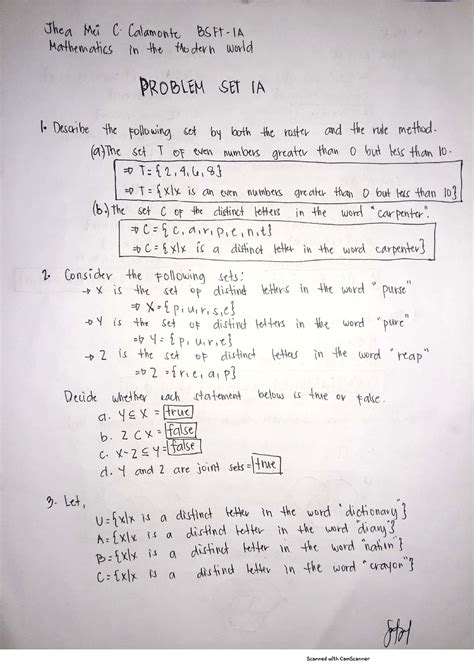 Jhea Mei C. Calamonte BSFT-1A
Mathematics in the Modern World
PROBLEM SET 1A
1. Describe the following set by both the roster and the rule method.
(a.) The set T of even numbers greater than 0 but less than 10.
⇒ T = {2, 4, 6, 8}
⇒ T = {x|x is an even numbers greater than 0 but less than 10}
(b.) The set C of the distinct letters in the word "carpenter".
⇒ C = {c, a, r, p, e, n, t}
⇒ C = {x|x is a distinct letter in the word carpenter}
2. Consider the following sets:
→ X is the set of distinct letters in the word "purse"
⇒ X = {p, u, r, s, e}
→ Y is the set of distinct letters in the word "pure"
⇒ Y = {p, u, r, e}
→ Z is the set of distinct letters in the word "reap"
⇒ Z = {r, e, a, p}
Decide whether each statement below is true or false.
a. Y ⊆ X = true
b. Z ⊂ X = false
c. X-Z ⊆ Y = false
d. Y and Z are joint sets = true
3. Let,
U = {x|x is a distinct letter in the word "dictionary"}
A = {x|x is a distinct letter in the word "diary"}
B = {x|x is a distinct letter in the word "nation"}
C = {x|x is a distinct letter in the word "crayon"}
Scanned with CamScanner